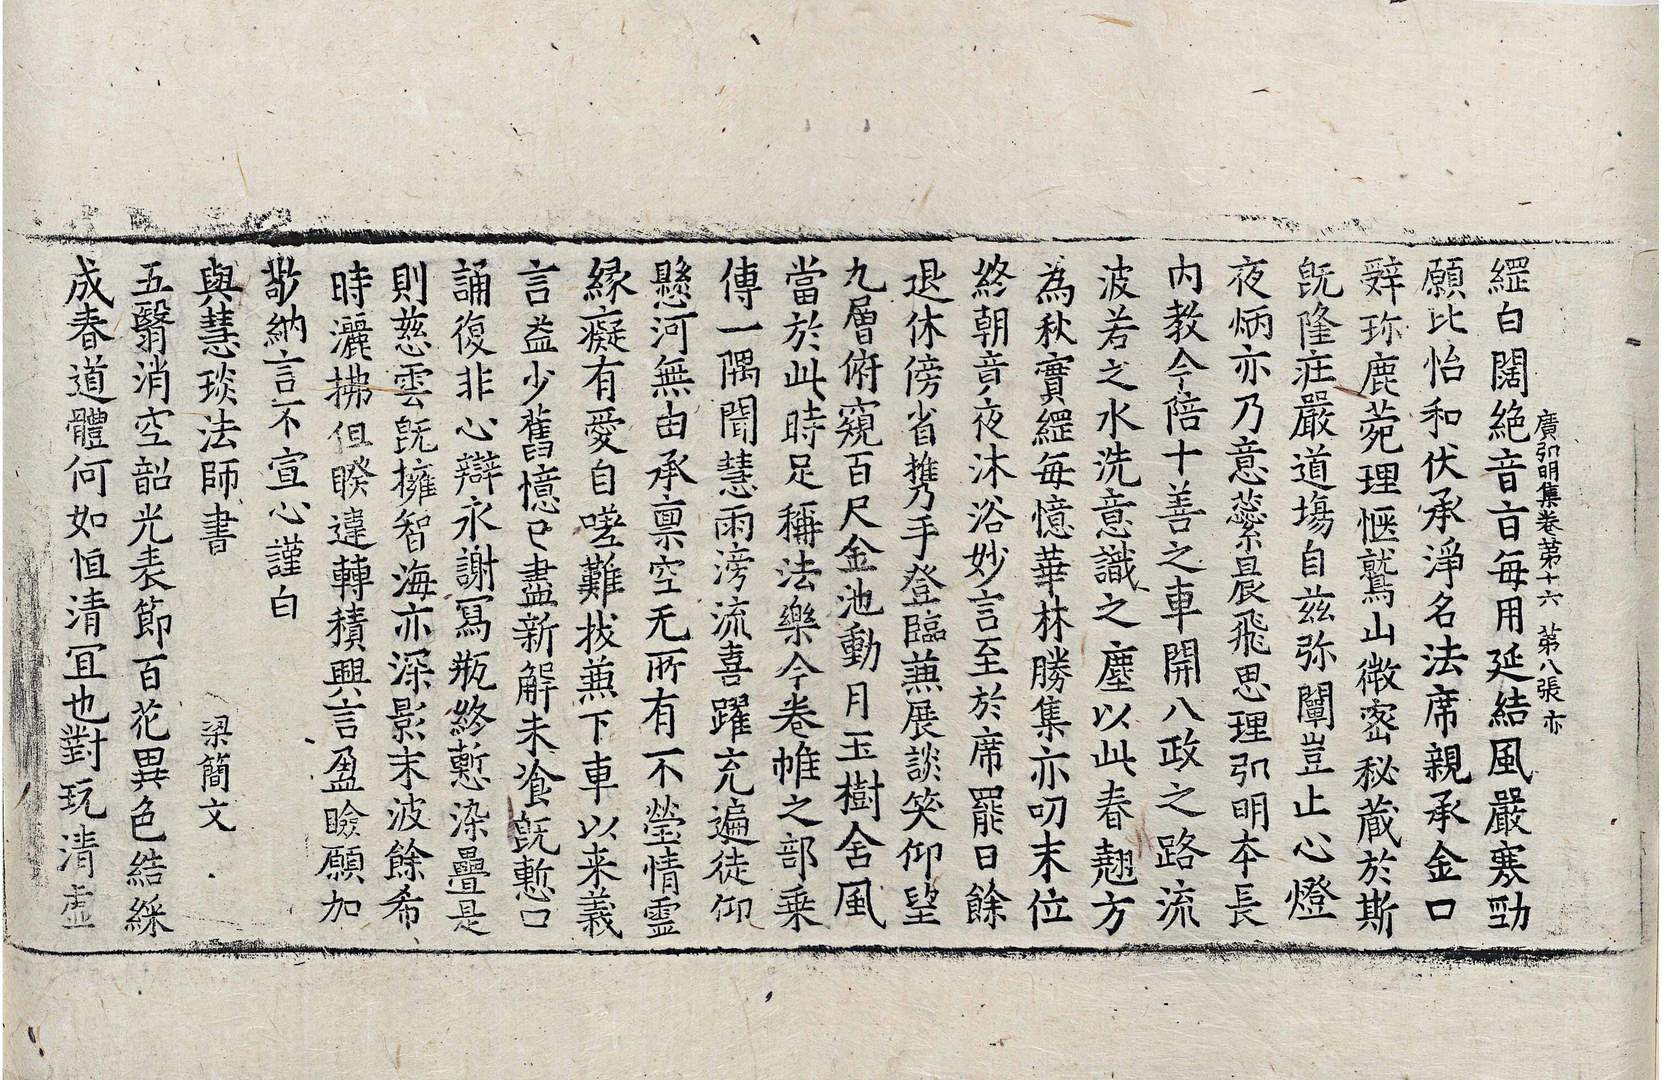 廣弘明集卷第十六　第八張　亦
纙白闊絕音旨每用延結風嚴寒勁
願比怡和伏承淨名法席親承金口
辤珎鹿菀理愜鷲山微密秘蔵於斯
旣隆庄嚴道塲自兹弥闡豈止心燈
夜炳亦乃意蘂晨飛思理弘明本長
内教今陪十善之車開八政之路流
波若之水洗意識之塵以此春翹方
為秋實纙每憶華林勝集亦叨末位
終朝音夜沐浴妙言至於席罷日餘
退休傍省擕手登臨兼展談笑仰望
九層俯窺百尺金池動月玉樹含風
當於此時足稱法樂今卷帷之部乗
傳一隅聞慧雨滂流喜躍充遍徒仰
懸河無由承禀空无所有不瑩情靈
緣癡有愛自嗟難拔兼下車以来義
言益少舊憶已盡新解未飡旣慙口
誦復非心辯永謝寫瓶終慙染疊是
則慈雲旣擁智海亦深影末波餘希
時灑拂但睽違轉積興言盈瞼願加
敬納言不宣心謹白
與慧琰法師書　梁簡文
五翳消空韶光表節百花異色結綵
成春道體何如恒清冝也對玩清虚